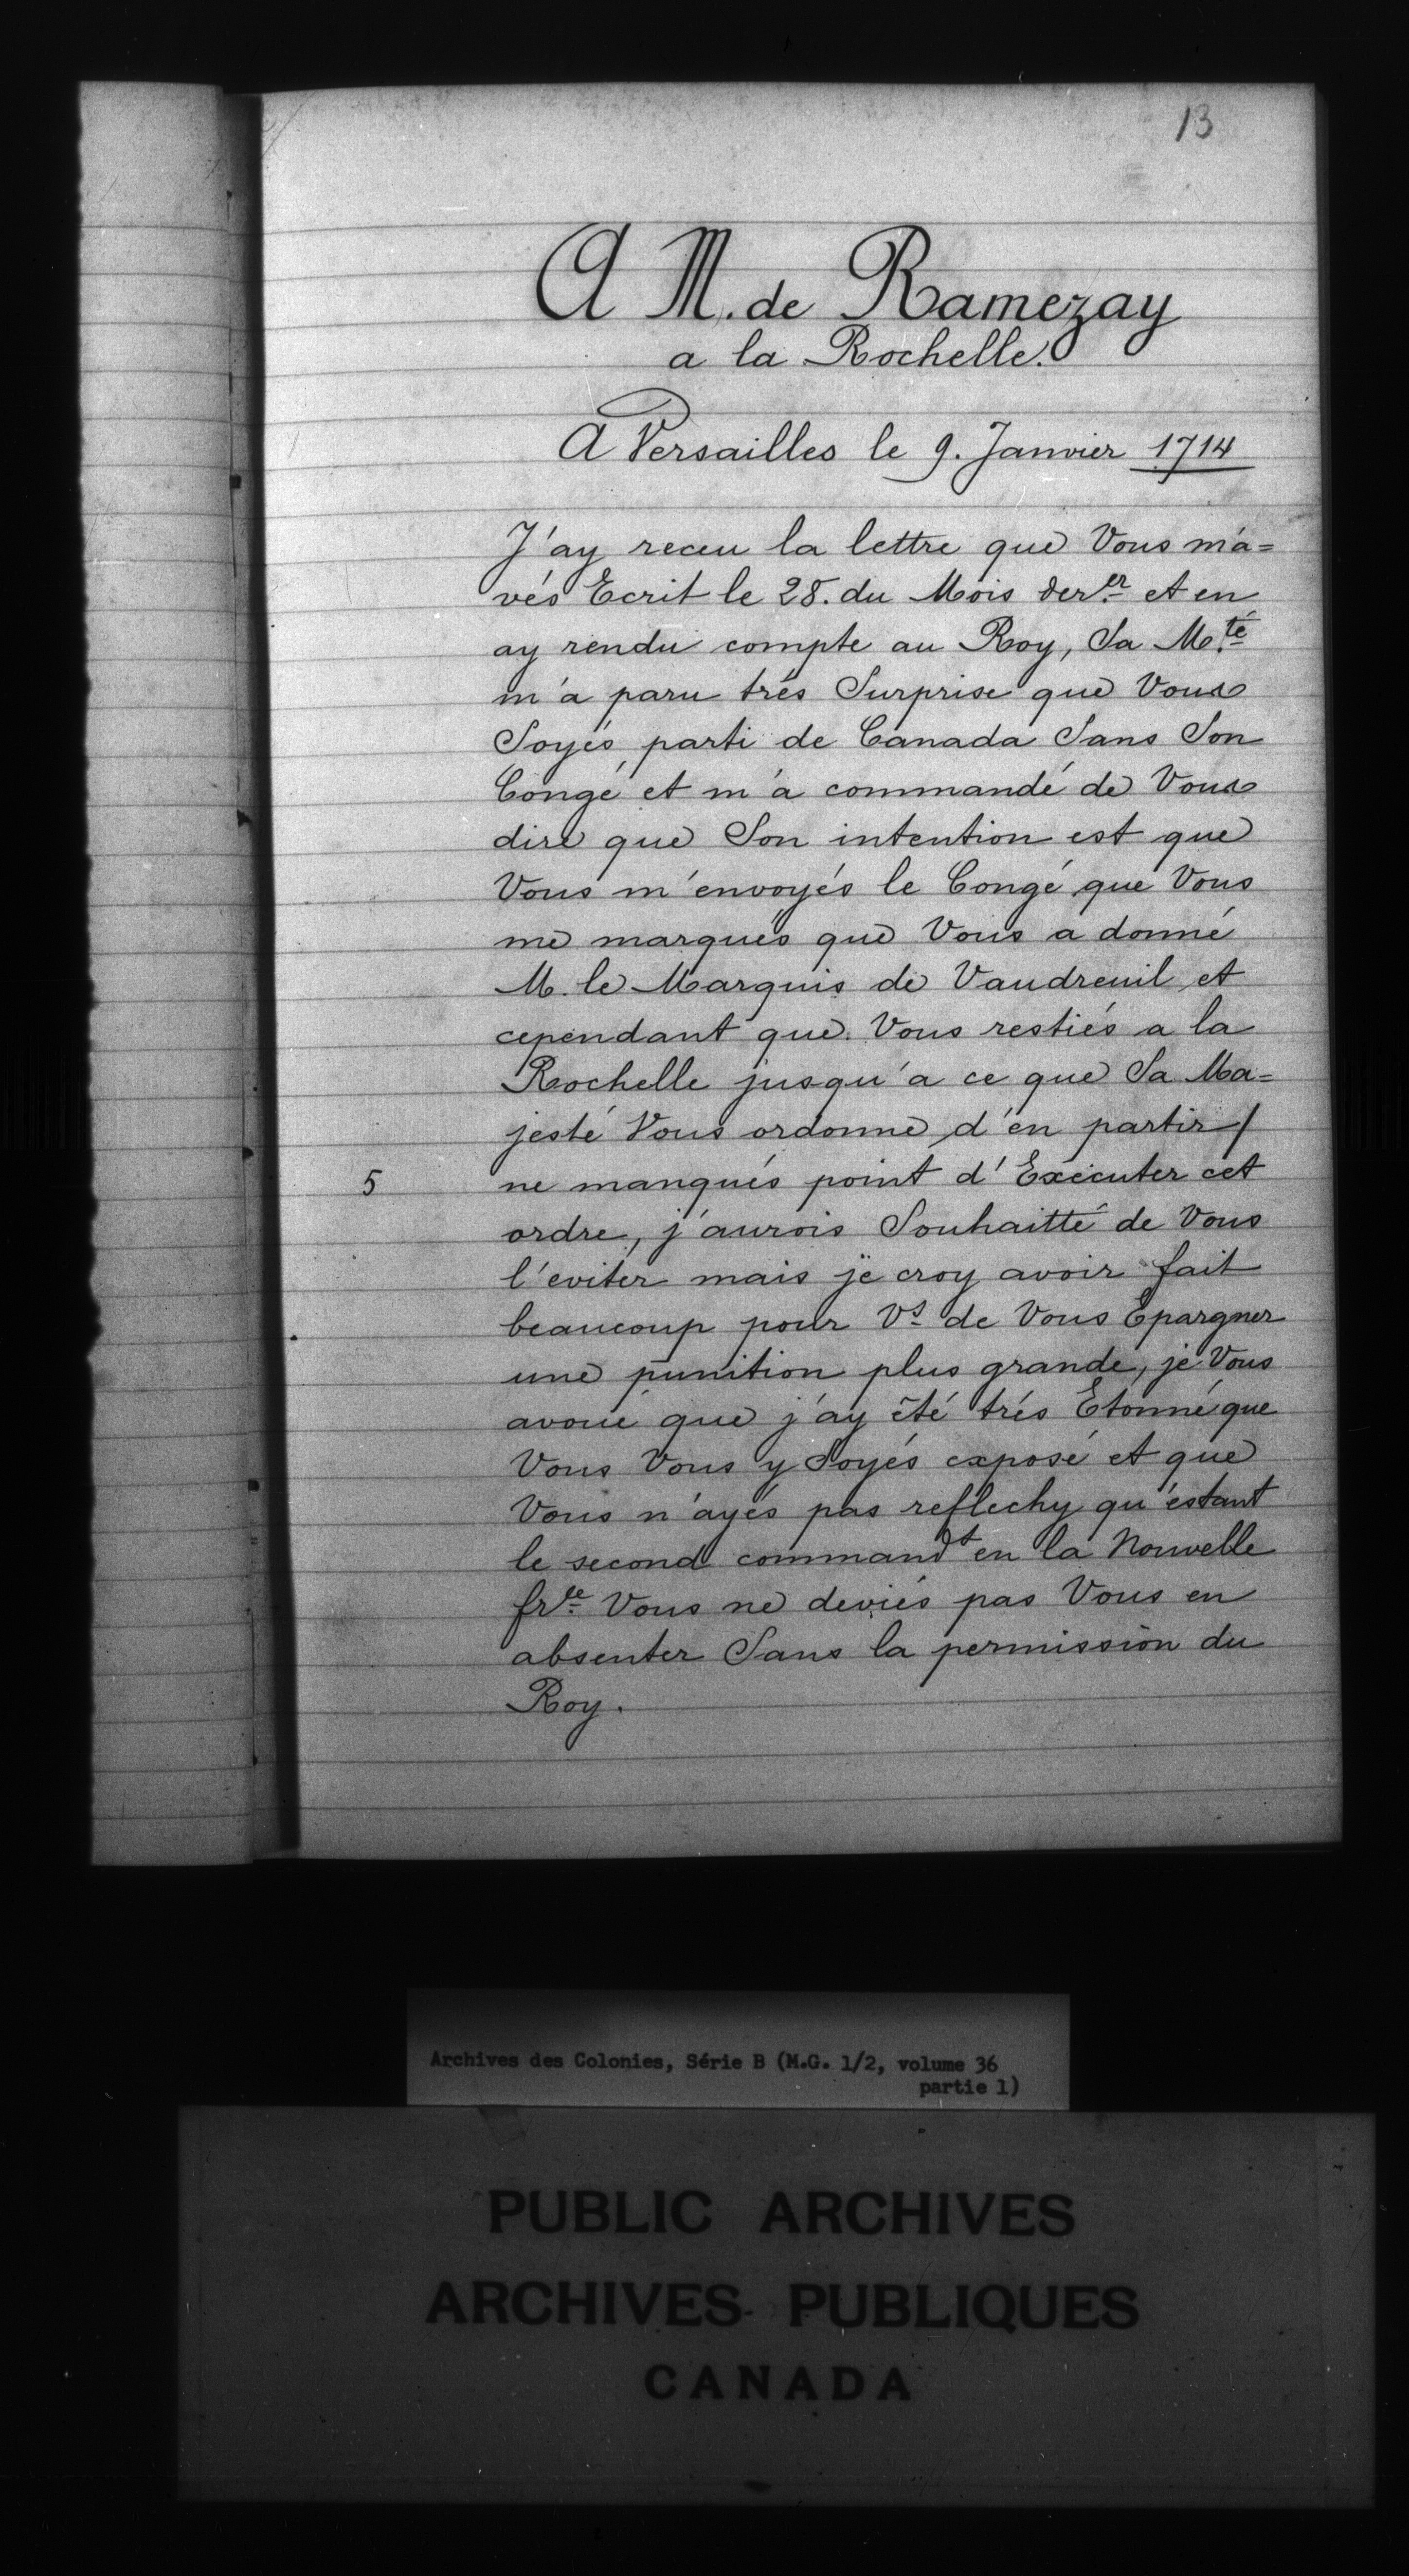 13
A M. de Ramezay
a la Rochelle.
A Versailles le 9. Janvier 1714
J'ay receu la lettre que Vous m'a=
vés Ecrit le 28. du Mois der.er et en
ay rendu compte au Roy, Sa M.té
m'a paru trés Surprise que Vous
Soyés parti de Canada Sans Son
Congé et m'a commandé de Vous
dire que Son intention est que
Vous m'envoyés le Congé que Vous
me marqués que Vous a donné
M. le Marquis de Vaudreuil et
cependant que Vous restiés a la
Rochelle jusqu'a ce que Sa Ma=
jesté Vous ordonne d'en partir/
5 ne manqués point d'Executer cet
ordre, j'aurois Souhaitté de Vous
l'eviter mais je croy avoir fait
beaucoup pour Vs de Vous Epargner
une punition plus grande, je Vous
avoüe que j'ay été trés Etonné que
Vous Vous y Soyés exposé et que
Vous n'ayés pas reflechy qu'estant
le second commandt en la Nouvelle
fr.ce Vous ne deviés pas Vous en
absenter Sans la permission du
Roy.
Archives des Colonies, Série B (M.G. 1/2, volume 36
partie 1)
PUBLIC ARCHIVES
ARCHIVES PUBLIQUES
CANADA